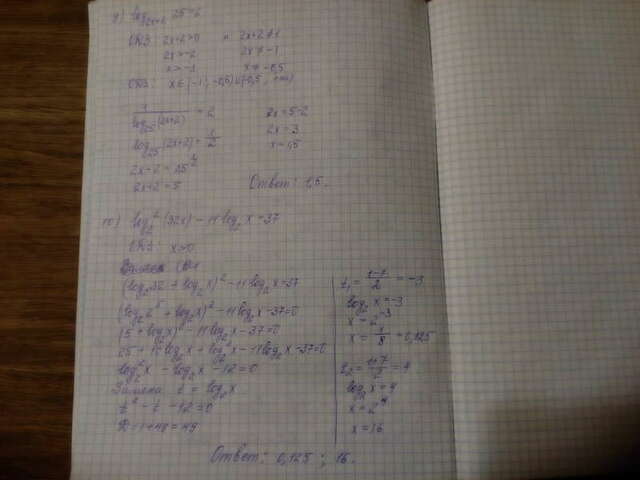 9) log₂ₓ₊₂ 25 = 2
ОДЗ: 2x+2>0 и 2x+2≠1
2x>-2 2x≠-1
x>-1 x≠-0,5
ОДЗ: x∈(-1; -0,5)∪(-0,5; +∞)
1/log₂₅(2x+2) = 2
log₂₅(2x+2) = 1/2
2x+2 = 25^(1/2)
2x+2 = 5
2x = 5-2
2x = 3
x = 1,5
Ответ: 1,5.
10) log₂²(32x) - 11 log₂ x = 37
ОДЗ: x>0
(log₂ 32 + log₂ x)² - 11 log₂ x = 37
(log₂ 2⁵ + log₂ x)² - 11 log₂ x - 37 = 0
(5 + log₂ x)² - 11 log₂ x - 37 = 0
25 + 10 log₂ x + log₂² x - 11 log₂ x - 37 = 0
log₂² x - log₂ x - 12 = 0
Замена t = log₂ x
t² - t - 12 = 0
D = 1 + 48 = 49
t₁ = (1-7)/2 = -3
log₂ x = -3
x = 2⁻³
x = 1/8 = 0,125
t₂ = (1+7)/2 = 4
log₂ x = 4
x = 2⁴
x = 16
Ответ: 0,125 ; 16.